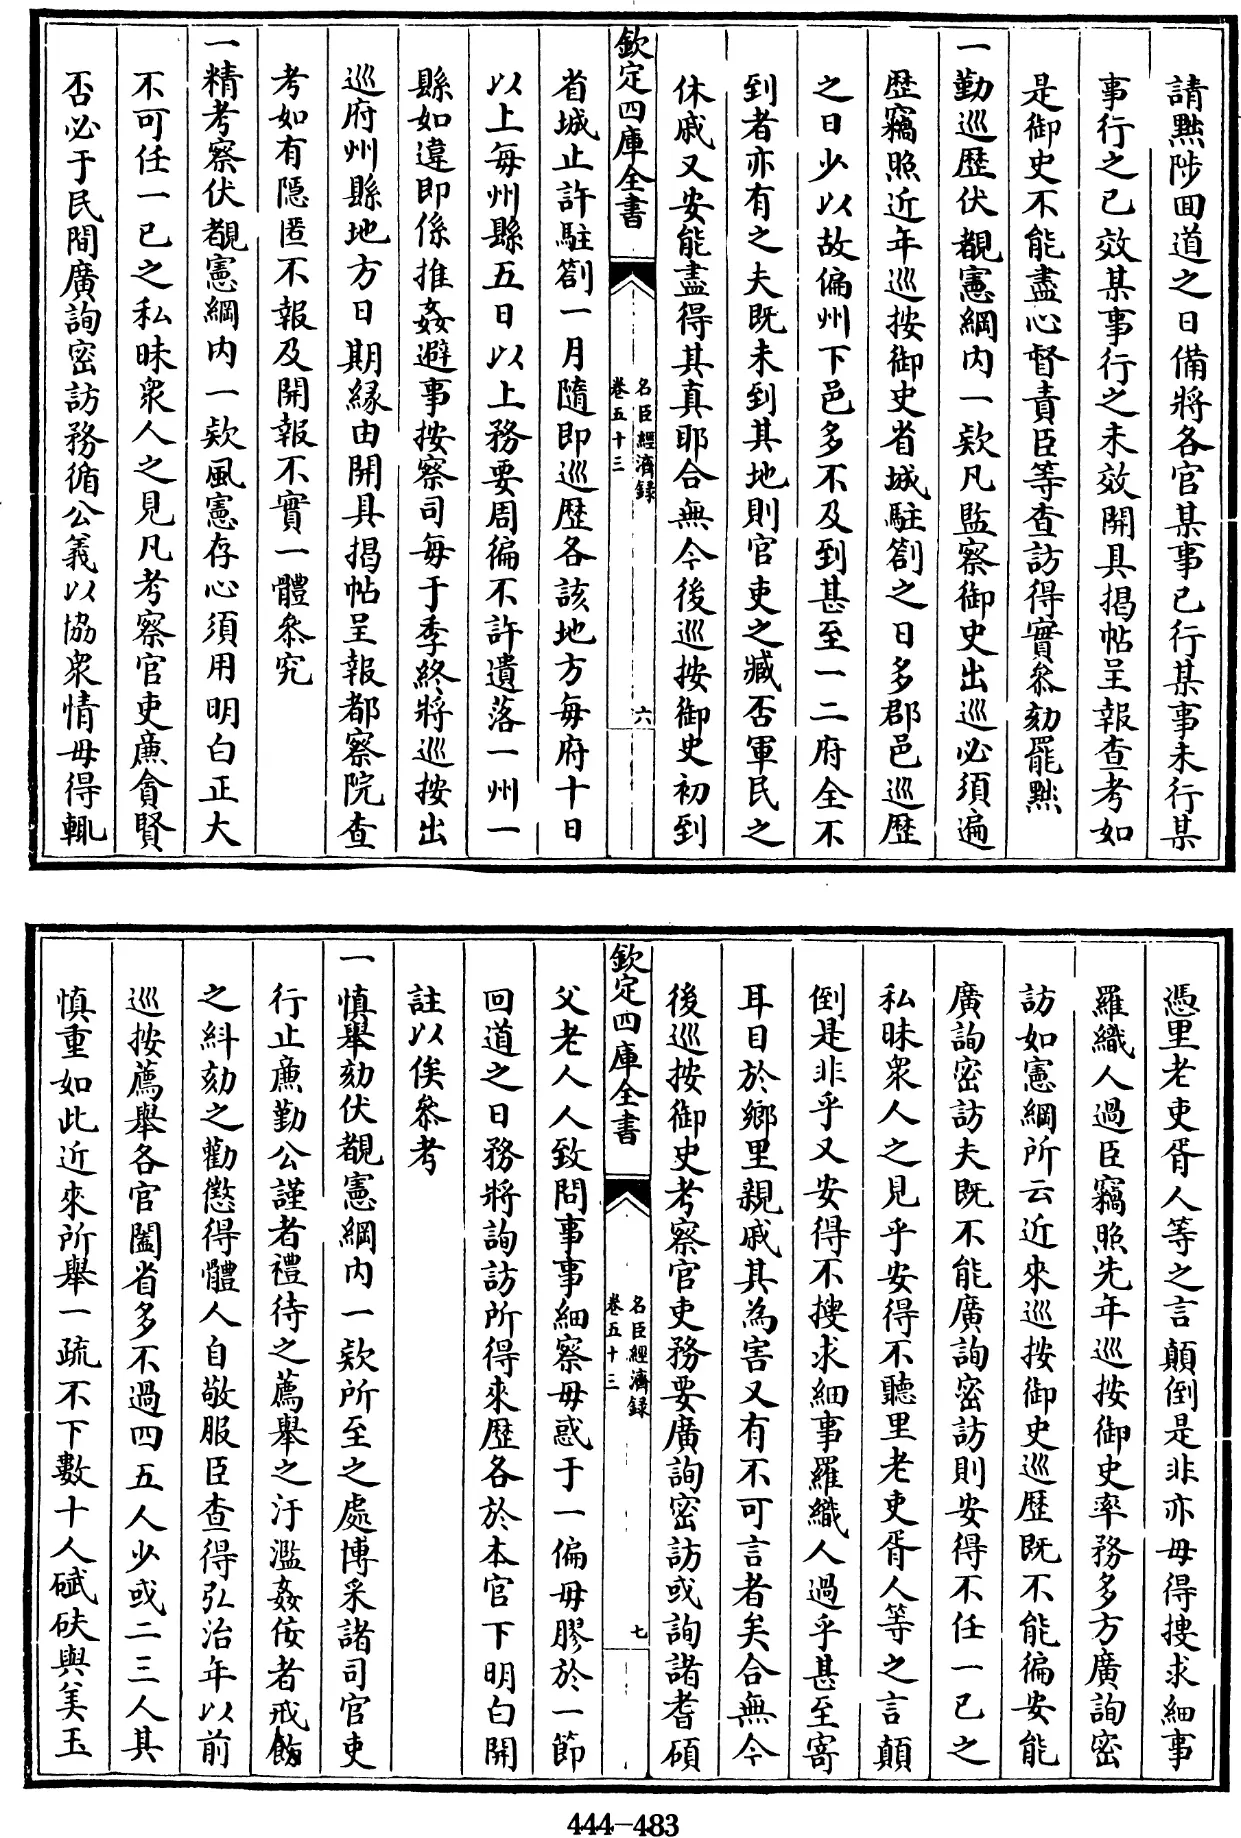 請黜陟回道之日備將各官某事已行某事未行某
事行之已效某事行之未效開具揭帖呈報查考如
是御史不能盡心督責臣等查訪得實叅劾罷黜
一勤巡歴伏覩憲綱内一款凡監察御史出巡必須遍
歴竊照近年巡按御史省城駐劄之日多郡邑巡歴
之日少以故偏州下邑多不及到甚至一二府全不
到者亦有之夫既未到其地則官吏之臧否軍民之
休戚又安能盡得其真耶合無今後巡按御史初到
欽定四庫全書
名臣經濟録
卷五十三
六
省城止許駐劄一月隨即巡歴各該地方每府十日
以上每州縣五日以上務要周徧不許遺落一州一
縣如違即係推姦避事按察司每于季終將巡按出
巡府州縣地方日期緣由開具揭帖呈報都察院查
考如有隠匿不報及開報不實一體叅究
一精考察伏覩憲綱内一款風憲存心須用明白正大
不可任一已之私昧衆人之見凡考察官吏廉貪賢
否必于民間廣詢密訪務循公義以協衆情毋得輒
憑里老吏胥人等之言顛倒是非亦毋得搜求細事
羅織人過臣竊照先年巡按御史率務多方廣詢密
訪如憲綱所云近來巡按御史巡歴既不能徧安能
廣詢密訪夫既不能廣詢密訪則安得不任一已之
私昧衆人之見乎安得不聽里老吏胥人等之言顛
倒是非乎又安得不搜求細事羅織人過乎甚至寄
耳目於鄉里親戚其為害又有不可言者矣合無今
後巡按御史考察官吏務要廣詢密訪或詢諸耆碩
欽定四庫全書
名臣經濟録
卷五十三
七
父老人人致問事事細察毋惑于一偏毋膠於一節
回道之日務將詢訪所得來歴各於本官下明白開
註以俟叅考
一慎舉劾伏覩憲綱内一款所至之處博采諸司官吏
行止廉勤公謹者禮待之薦舉之汙濫姦佞者戒飭
之糾劾之勸懲得體人自敬服臣查得弘治年以前
巡按薦舉各官闔省多不過四五人少或二三人其
慎重如此近來所舉一疏不下數十人碔砆與美玉
444-483